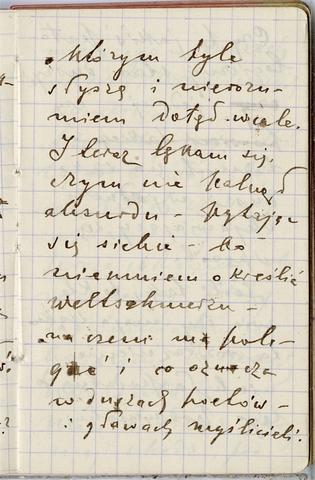 którym tyle
słyszę i nierozu-
miem dotąd wiele.
I teraz lękam się,
czym nie palnął
absurdu - pytając
się siebie - bo
nieumiem określić
weltschmerzu -
na czem ma pole-
gać i co oznacza
w duszach poetów -
i głowach myślicieli.